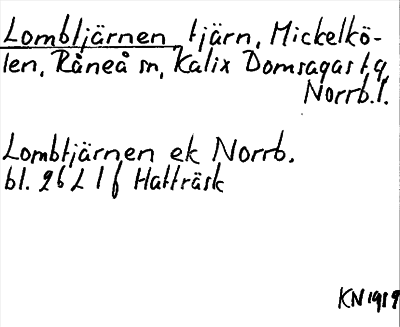 Lombtjärnen tjärn, Mickelkö-
len, Råneå sn, Kalix Domsagas tg
Norrb.l.
Lombtjärnen ek Norrb.
bl. 26 L 1 f Hatträsk
KN 1919